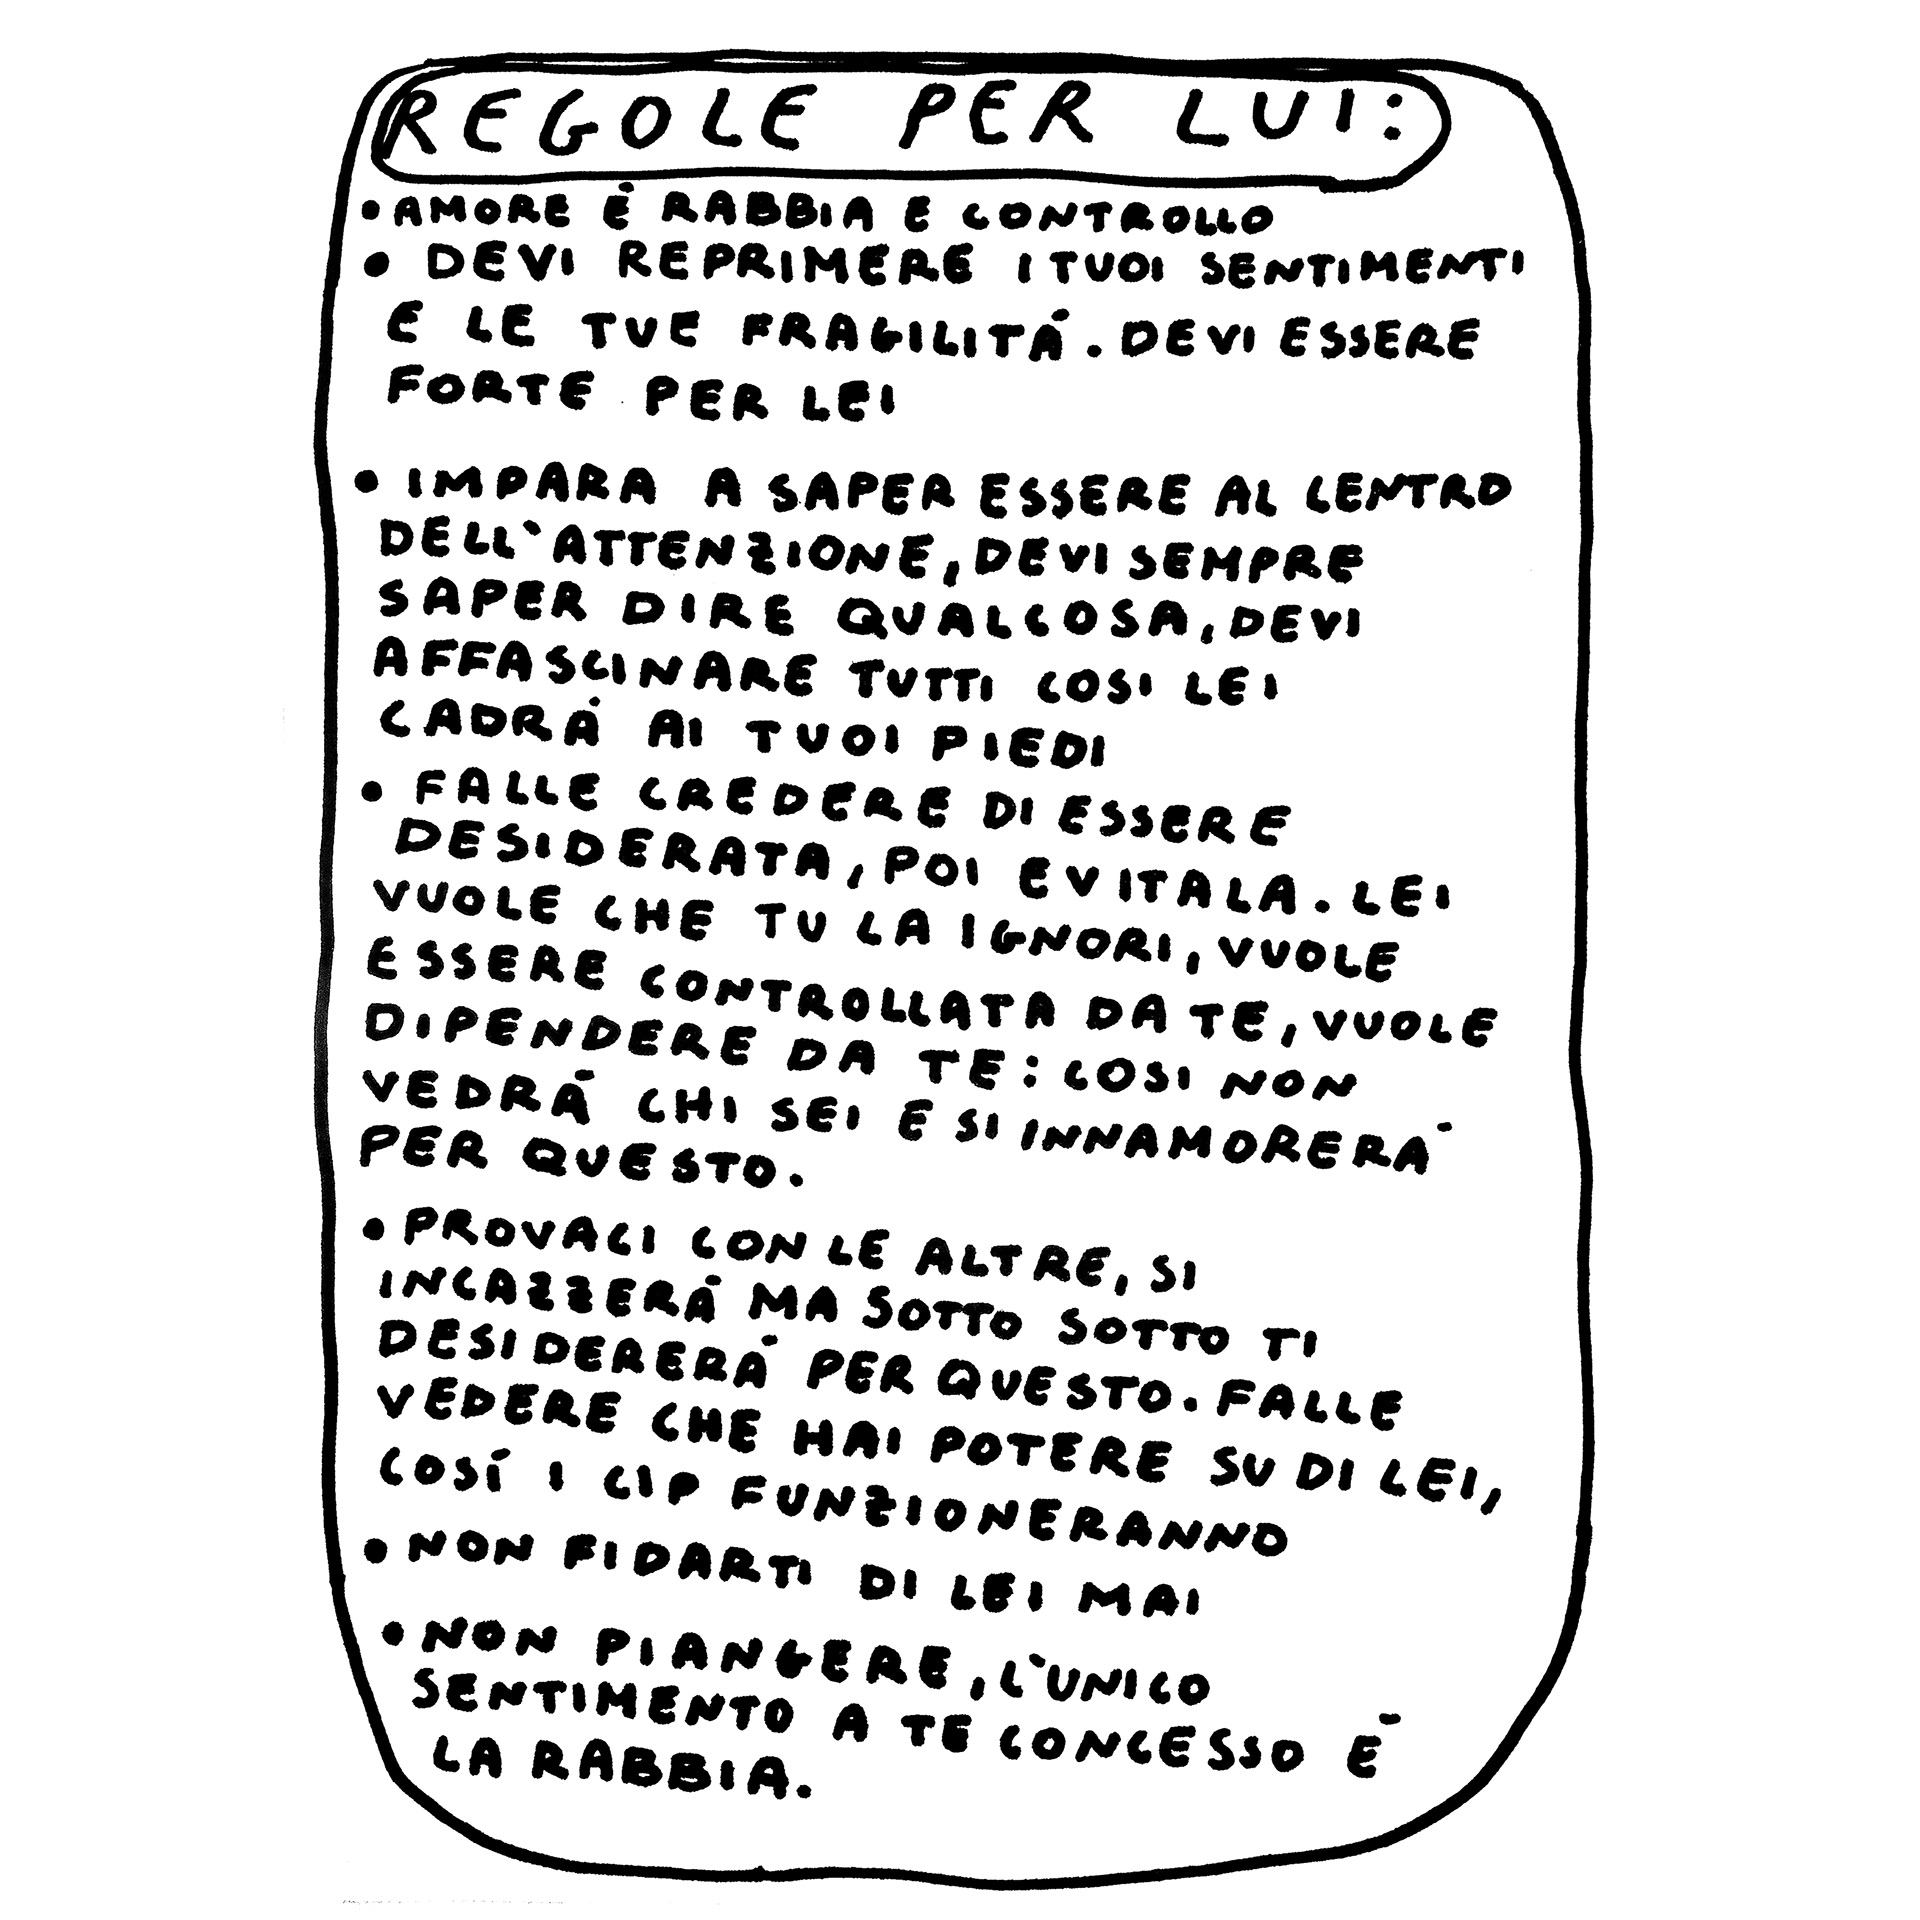 REGOLE PER LUI:
•AMORE È RABBIA E CONTROLLO
• DEVI REPRIMERE I TUOI SENTIMENTI
E LE TUE FRAGILITÁ. DEVI ESSERE
FORTE PER LEI
• IMPARA A SAPER ESSERE AL CENTRO
DELL'ATTENZIONE, DEVI SEMPRE
SAPER DIRE QUALCOSA, DEVI
AFFASCINARE TUTTI COSI LEI
CADRÁ AI TUOI PIEDI
• FALLE CREDERE DI ESSERE
DESIDERATA, POI EVITALA. LEI
VUOLE CHE TU LA IGNORI, VUOLE
ESSERE CONTROLLATA DA TE, VUOLE
DIPENDERE DA TE: COSI NON
VEDRÁ CHI SEI E SI INNAMORERÁ
PER QUESTO.
• PROVACI CON LE ALTRE, SI
INCAZZERÁ MA SOTTO SOTTO TI
DESIDERERÁ PER QUESTO. FALLE
VEDERE CHE HAI POTERE SU DI LEI,
COSÍ I CIP FUNZIONERANNO
• NON FIDARTI DI LEI MAI
• NON PIANGERE, L'UNICO
SENTIMENTO A TE CONCESSO É
LA RABBIA.